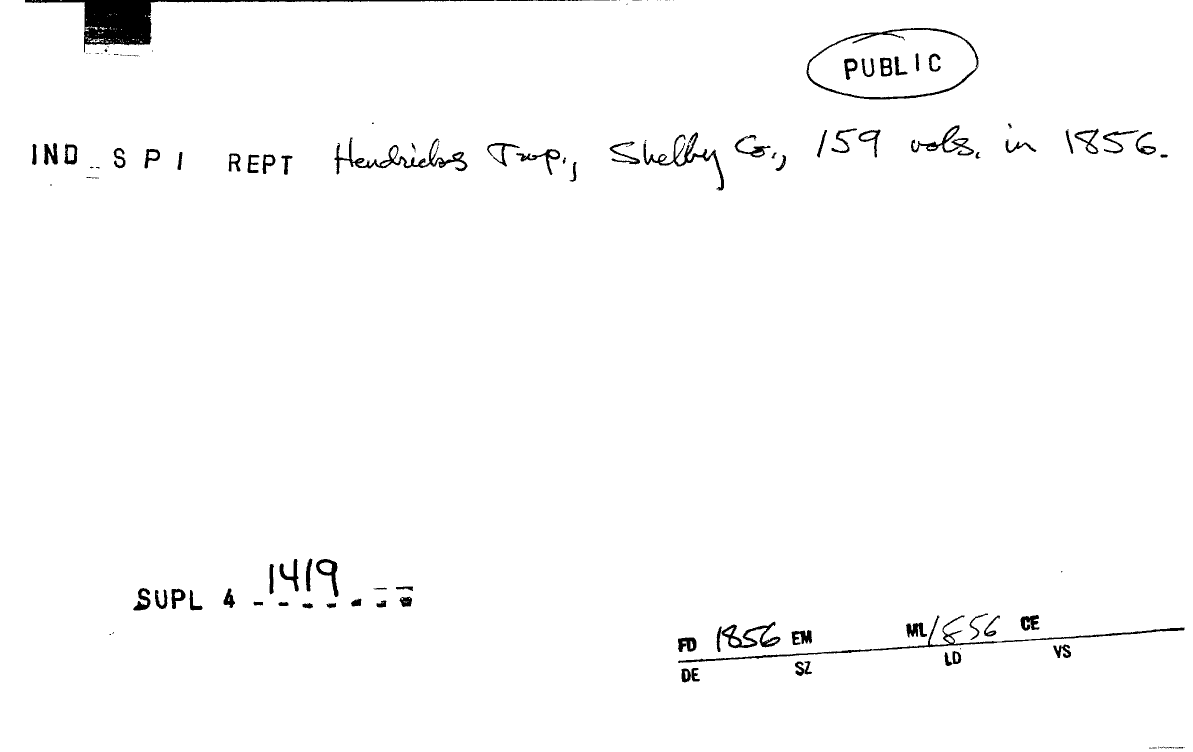 PUBLIC
IND S P I REPT Hendricks Twp., Shelby Co., 159 vols. in 1856.
SUPL 4 1419
FD 1856 EM ML 1856 CE
DE SZ LD VS